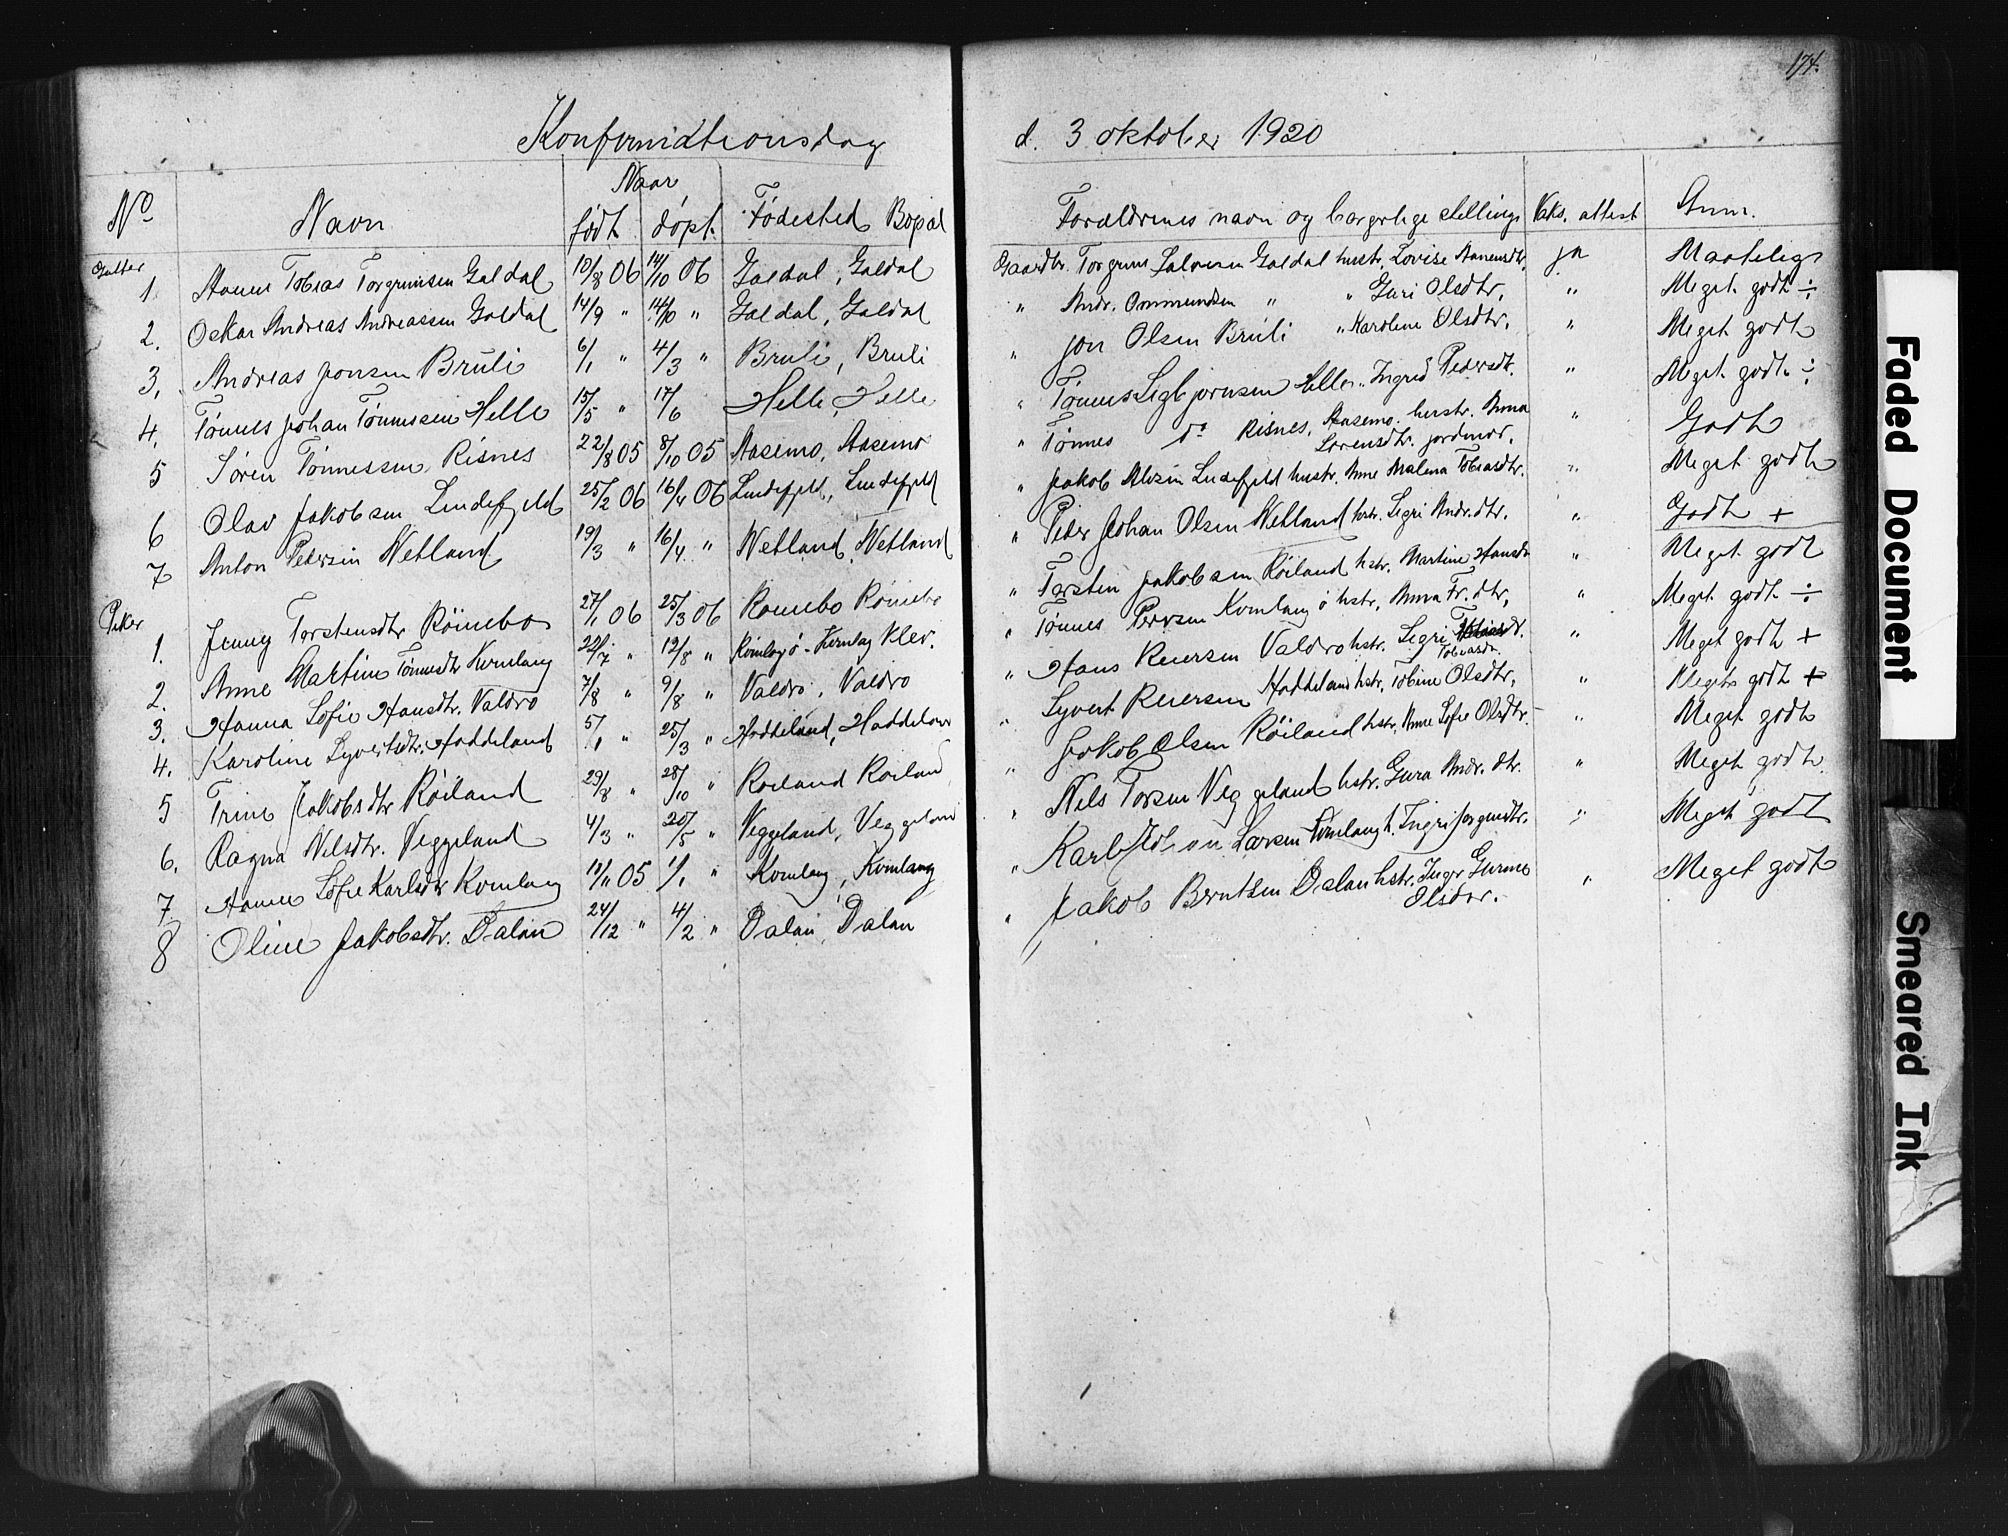 174.
Konfirmationsdag d. 3 oktober 1920
No Navn Naar født døpt. Fødested Bopæl Forældrenes navn og borgerlige stilling Vaks. attest Anm.
Gutter
1. Hanne Tobias Torgrimsen Galdal 19/8 06 14/10 06 Galdal, Galdal Gaardbr. Torgrim Salvesen Galdal hustr. Lovise Hansdtr. ja Maatelig
2. Oskar Andreas Andreassen Galdal 14/9 " 14/10 " Galdal, Galdal " Andr. Ommundsen " " Guri Olsdtr. " Meget godt ÷
3. Andreas Jonsen Bruli 6/1 " 4/3 " Bruli, Bruli " Jon Olsen Bruli " Karoline Olsdtr. " Meget godt
4. Tønnes Johan Tønnessen Helle 15/5 " 17/6 Helle, Helle " Tønnes Sigbjørnsen Helle " Ingrid Pedersdt. " Meget godt ÷
5 Søren Tønnessen Risnes 22/8 05 8/10 05 Aasemo, Aasemo " Tønnes do Risnes, Aasemo. hustr. Anna Lorensdtr. jordmor. " Godt
6 Olav Jakobsen Lindefjeld 25/2 06 16/4 06 Lindefjeld, Lindefjeld " Jakob Lindefjeld hustr. Anne Malena Tobiasdtr. " Meget godt
7 Anton Pedersen Netland 19/3 " 16/4 " Netland, Netland " Peder Johan Olsen Netland hstr. Sigri Andr.dtr. " Godt +
Piker
1. Jenny Torstensdtr Röinebo 27/1 06 25/3 06 Rømebo Rømebo " Torstein Jakobsen Röiland hstr. Martine Hansdt " Meget godt
2. Anne Martine Tønnesdtr Kvinlaug 22/7 " 12/8 " Kvinlog ö - Kvinlog Klev. " Tønnes Persen Kvinlaug ö hstr. Anna Fr. dtr. " Meget godt ÷
3. Hanna Sofie Hansdtr. Valdro 7/8 " 9/8 " Valdro, Valdro " Hans Reiersen Valdro hstr. Sigri Tobiasdt. " Meget godt +
4. Karoline Syvertsdtr. Haddeland 5/1 " 25/3 " Haddeland, Haddeland " Syvert Reiersen Haddeland hstr. Tobine Olsdtr. " Meget godt +
5 Trine Jakobsdtr Röiland 29/8 " 28/10 " Roiland Roiland " Jakob Olsen Röiland hstr. Anne Sofie Olsdtr. " Meget godt
6. Ragna Nilsdtr. Veggeland 4/3 " 20/5 " Veggeland, Veggeland " Nils Torsen Veggeland hstr. Gura Andr. dtr. " Meget godt
7 Hanne Sofie Karlsdtr Kvinlaug 13/11 05 1/1 " Kvinlaug, Kvinlaug " Karl Larsen Kvinlaug h. Ingri Jørgensdtr. " Meget godt
8 Oline Jakobsdtr. Dalan 24/12 " 4/2 " Dalan, Dalan " Jakob Berntsen Dalan hstr. Inger Gurine Olsdtr. " Meget godt
Faded Document
Smeared Ink